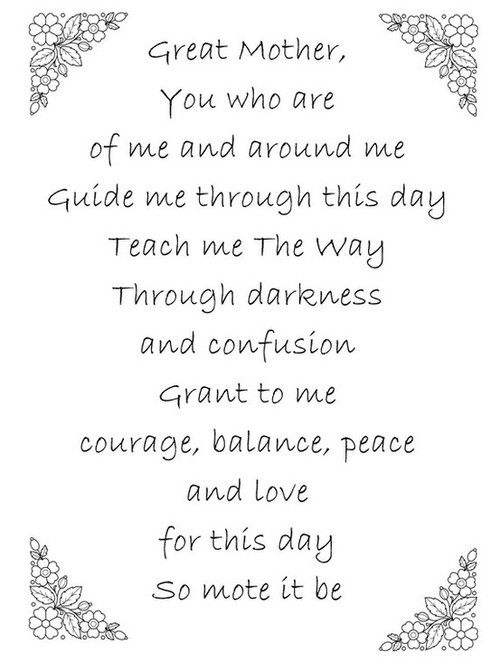 Great Mother,
You who are
of me and around me
Guide me through this day
Teach me The Way
Through darkness
and confusion
Grant to me
courage, balance, peace
and love
for this day
So mote it be